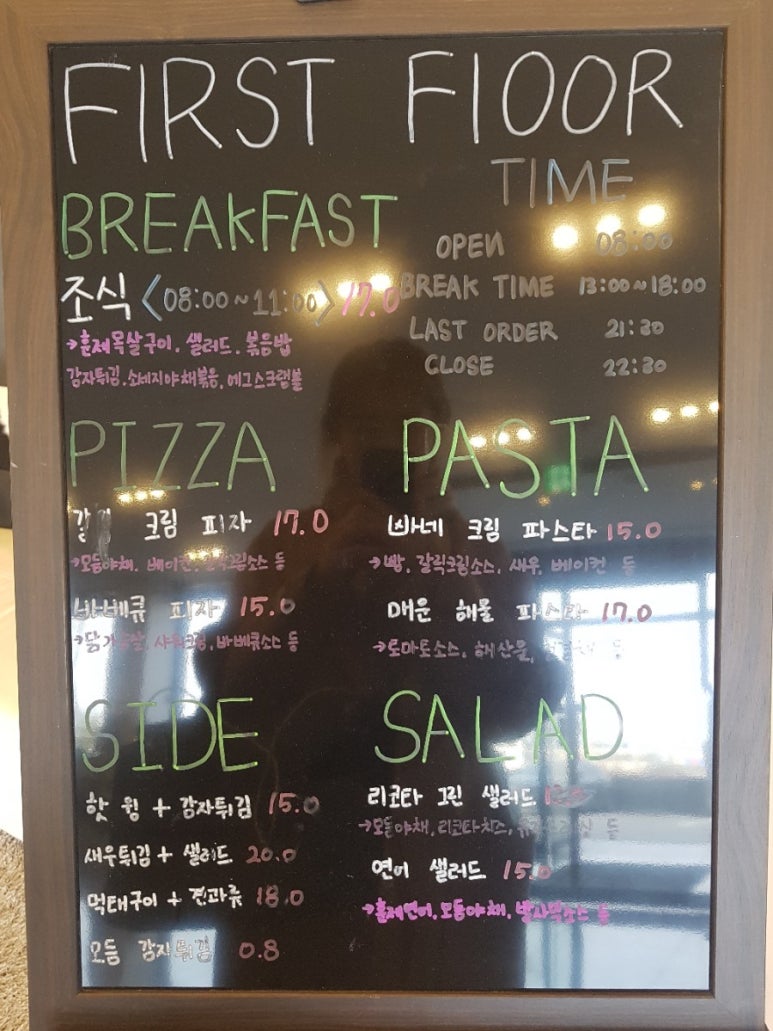 FIRST FlOOR
TIME
OPEN 08:00
BREAK TIME 13:00~18:00
LAST ORDER 21:30
CLOSE 22:30
BREAKFAST
조식 <08:00~11:00> 17.0
→훈제목살구이. 샐러드. 볶음밥
감자튀김. 소세지야채볶음, 에그스크램블
PIZZA
크림 피자 17.0
→모듬야채, 베이컨, 등
바베큐 피자 15.0
→닭가슴살, 샤워크림, 바베큐소스 등
PASTA
빠네 크림 파스타 15.0
→빵, 갈릭크림소스, 새우, 베이컨 등
매운 해물 파스타 17.0
→토마토소스, 해산물, 등
SIDE
핫 윙 + 감자튀김 15.0
새우튀김 + 샐러드 20.0
먹태구이 + 견과류 18.0
모듬 감자튀김 0.8
SALAD
리코타 그린 샐러드
→모듬야채, 리코타치즈, 등
연어 샐러드 15.0
→훈제연어, 모듬야채, 발사믹소스 등